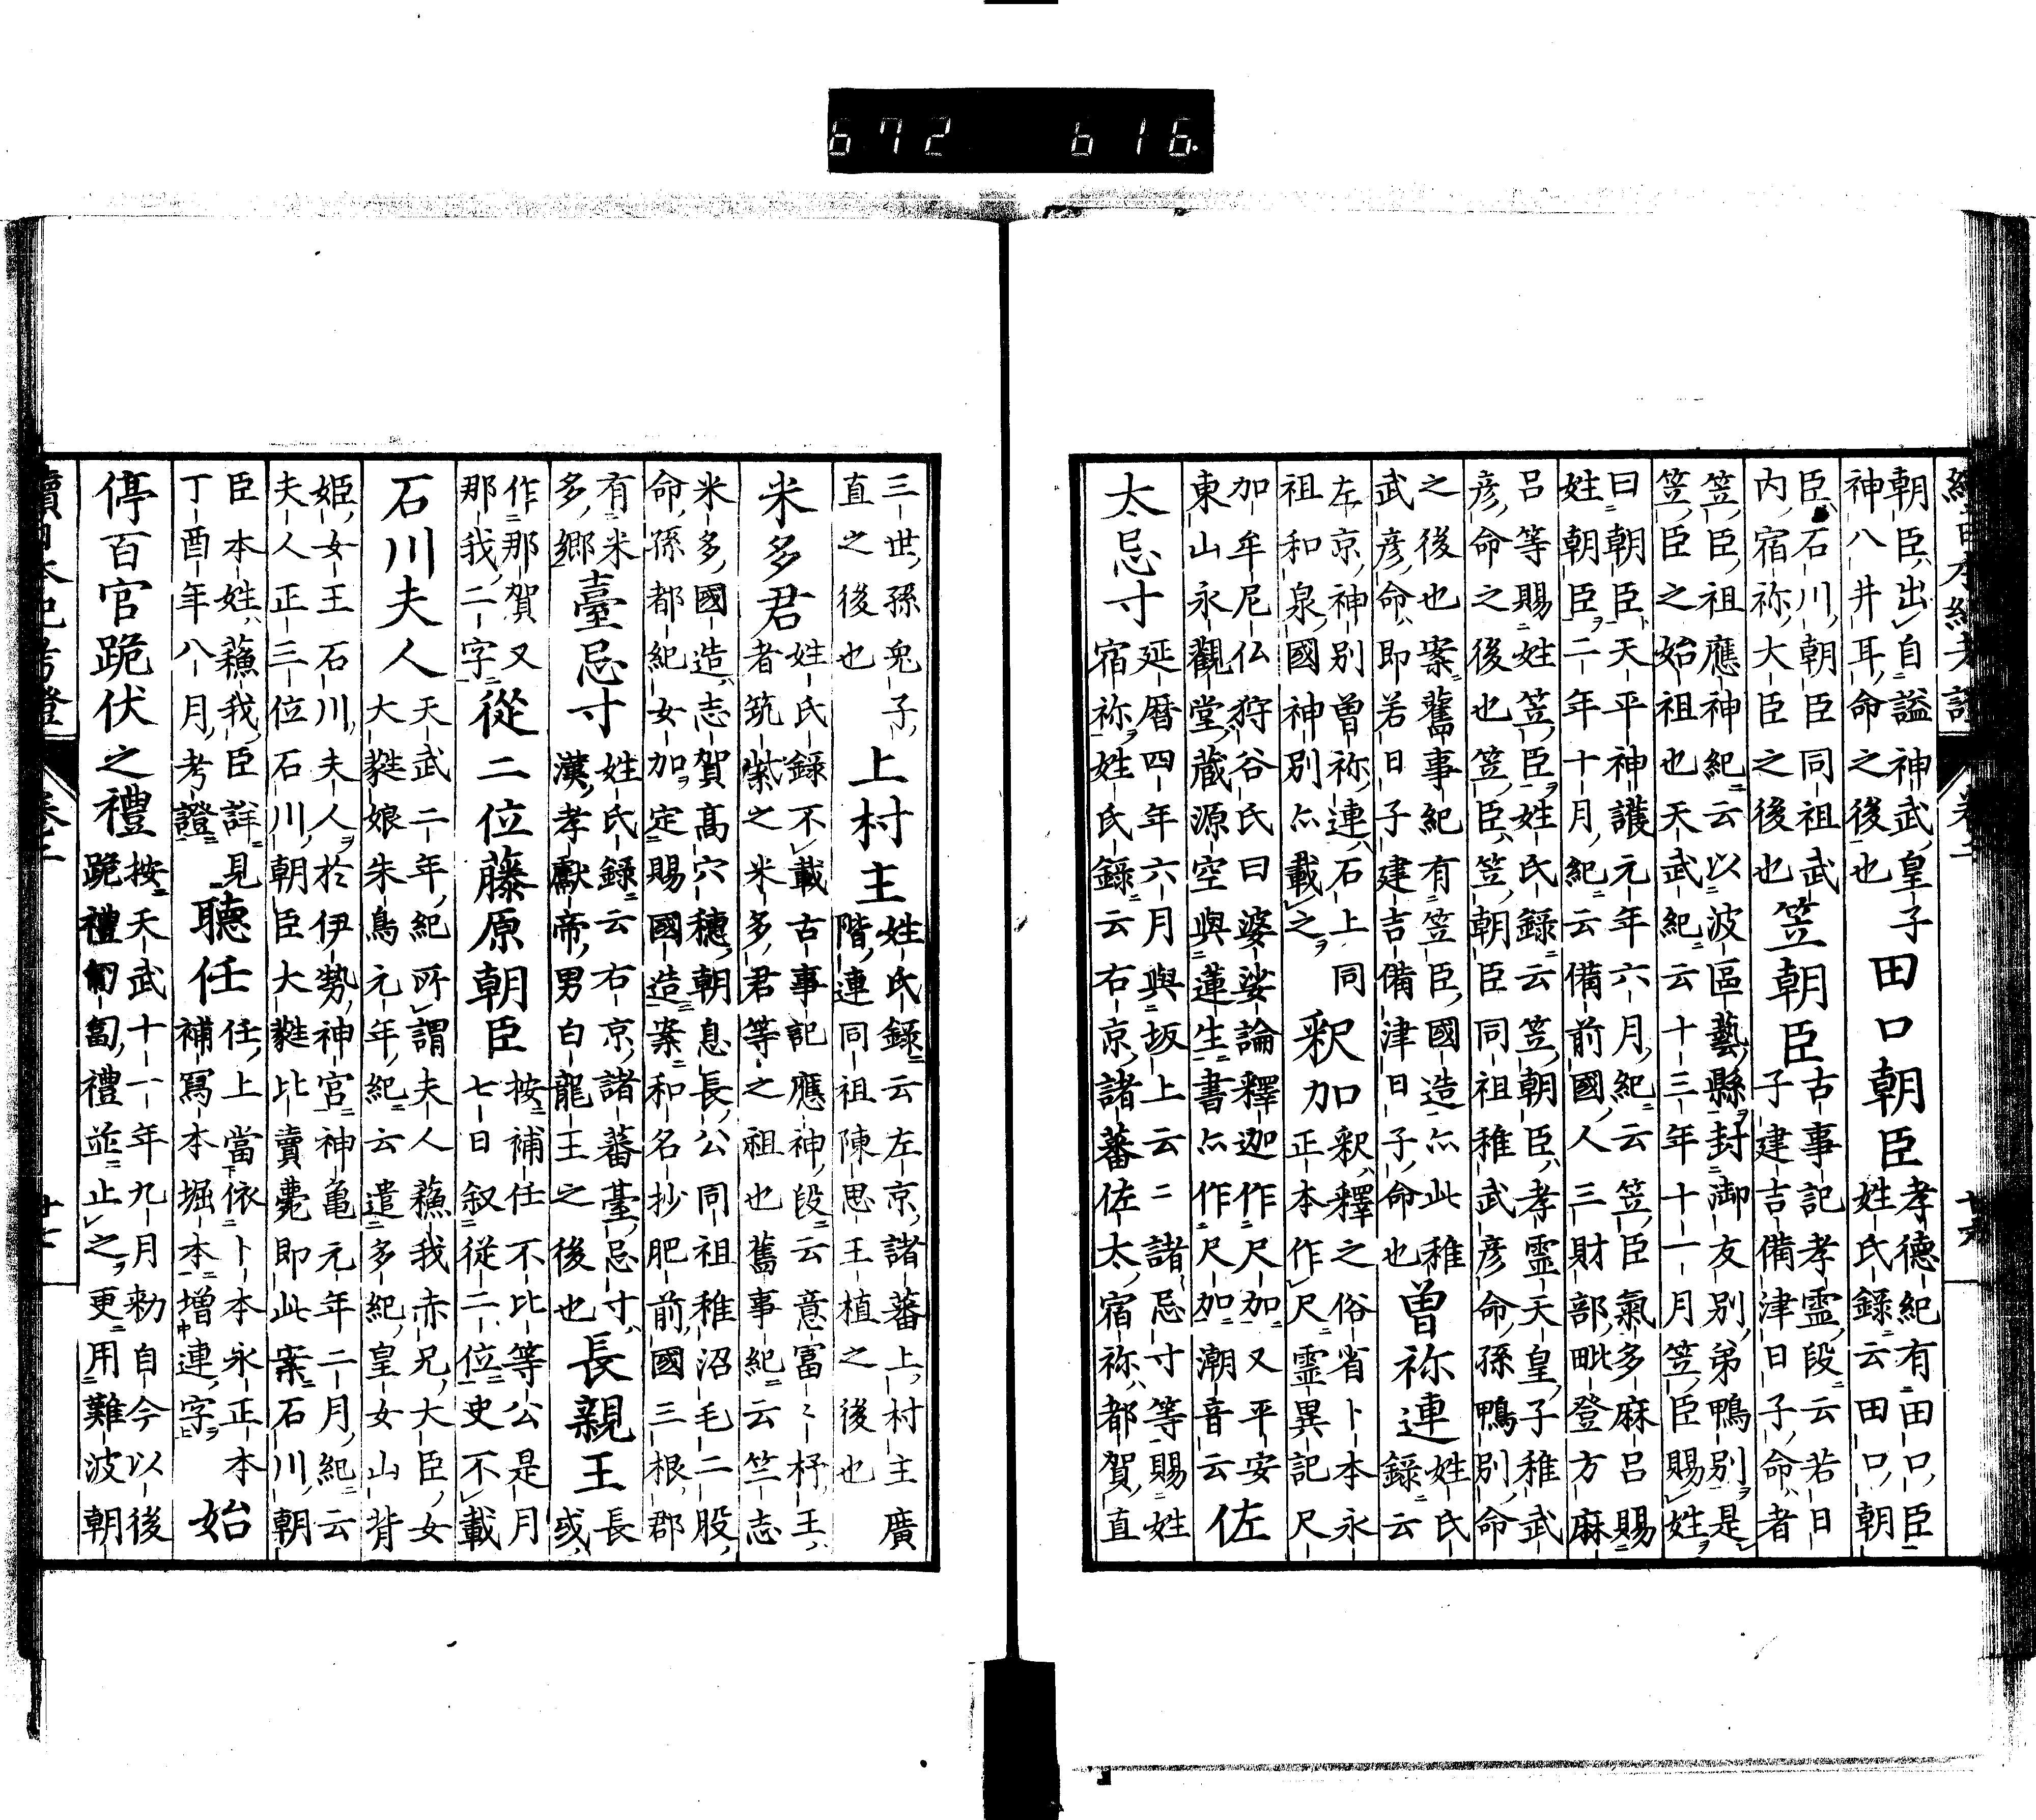 672 616
朝臣出自謚神武皇子
神八井耳命之後也
田口朝臣
孝德紀有田口臣
姓氏録云田口朝
臣石川朝臣同祖武
内宿祢大臣之後也
笠朝臣
古事記孝霊段云若日
子建吉備津日子命者
笠臣祖應神紀云以波區藝縣封御友別弟鴨別是
笠臣之始祖也天武紀云十三年十一月笠臣賜姓
曰朝臣天平神護元年六月紀云笠臣氣多麻呂賜
姓朝臣二年十月紀云備前國人三財部毗登方麻
呂等賜姓笠臣姓氏録云笠朝臣孝霊天皇皇子稚武
彦命之後也笠臣笠朝臣同祖稚武彦命孫鴨別命
之後也案舊事紀有笠臣國造亦此稚
武彦命即若日子建吉備津日子命也
曽祢連
姓氏
録云
左京神別曽祢連石上同
祖和泉國神別亦載之
釈加
釈釋之俗省卜本永
正本作尺霊異記尺
加牟尼仏狩谷氏曰婆娑論釋迦作尺加又平安
東山永觀堂蔵源空與蓮生書亦作尺加潮音云
佐
太忌寸
延暦四年六月與坂上云二諸忌寸等賜姓
宿祢姓氏録云右京諸蕃佐太宿祢都賀直
三世孫兎子
直之後也
上村主
姓氏録云左京諸蕃上村主廣
階連同祖陳思王植之後也
米多君
姓氏録不載古事記應神段云意冨〻杼王
者筑紫之米多君等之祖也舊事紀云竺志
米多國造志賀髙穴穂朝息長公同祖稚沼毛二股
命孫都紀女加定賜國造案和名抄肥前國三根郡
有米
多郷
臺忌寸
姓氏録云右京諸蕃臺忌寸
漢孝獻帝男白龍王之後也
長親王
長
或
作那賀又
那我二字
從二位藤原朝臣
按補任不比等公是月
七日叙從二位史不載
石川夫人
天武二年紀所謂夫人蘓我赤兄大臣女
大蕤娘朱鳥元年紀云遣多紀皇女山背
姫女王石川夫人於伊勢神宮神亀元年二月紀云
夫人正三位石川朝臣大蕤比賣薨即此案石川朝
臣本姓蘓我臣詳見
丁酉年八月考證
聽任
任上當依卜本永正本
補寫本堀本増連字
始
停百官跪伏之禮
按天武十一年九月勅自今以後
跪禮匍匐禮並止之更用難波朝